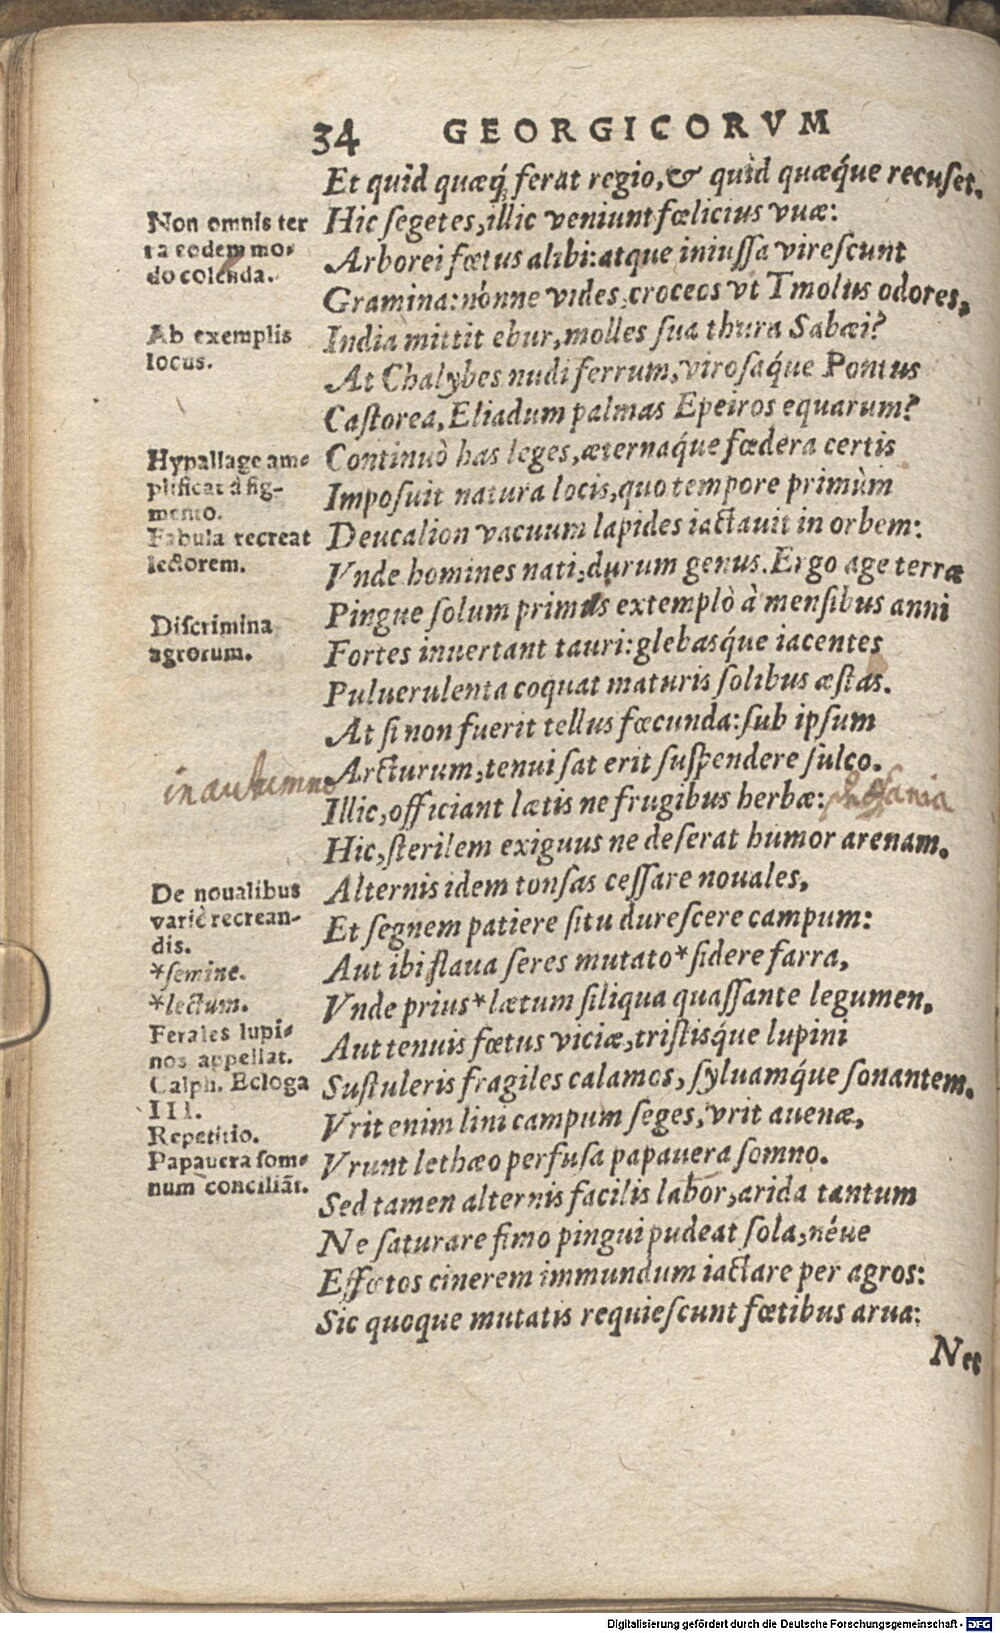 34 GEORGICORVM
Et quid quæq́; ferat regio, & quid quæq́ue recuset.
Non omnis ter
ra eodem mo-
do colenda.
Hic segetes, illic veniunt fœlicius vuæ:
Arborei fœtus alibi: atque iniussa virescunt
Gramina: nónne vides, croceos vt Tmolus odores,
Ab exemplis
locus.
India mittit ebur, molles sua thura Sabæi?
At Chalybes nudi ferrum, virosaq́ue Pontus
Castorea, Eliadum palmas Epeiros equarum?
Hypallage am-
plificat à fig-
mento.
Continuò has leges, æternaq́ue fœdera certis
Imposuit natura locis, quo tempore primùm
Fabula recreat
lectorem.
Deucalion vacuum lapides iactauit in orbem:
Vnde homines nati, durum genus. Ergo age terræ
Discrimina
agrorum.
Pingue solum primus extemplò à mensibus anni
Fortes inuertant tauri: glebasq́ue iacentes
Puluerulenta coquat maturis solibus æstas.
At si non fuerit tellus fœcunda: sub ipsum
in autumno
Arcturum, tenui sat erit suspendere sulco.
Illic, officiant lætis ne frugibus herbæ:
Hic, sterilem exiguus ne deserat humor arenam.
De noualibus
variè recrean-
dis.
*semine.
*lectum.
Alternis idem tonsas cessare nouales,
Et segnem patiere situ durescere campum:
Aut ibi flaua seres mutato* sidere farra,
Vnde prius* lætum siliqua quassante legumen,
Ferales lupi-
nos appellat.
Calph. Ecloga
III.
Aut tenuis fœtus viciæ, tristisq́ue lupini
Sustuleris fragiles calamos, syluamq́ue sonantem.
Repetitio.
Papauera som-
num conciliãt.
Vrit enim lini campum seges, vrit auenæ,
Vrunt lethæo perfusa papauera somno.
Sed tamen alternis facilis labor, arida tantum
Ne saturare fimo pingui pudeat sola, néue
Effœtos cinerem immundum iactare per agros:
Sic quoque mutatis requiescunt fœtibus arua:
Nec
Digitalisierung gefördert durch die Deutsche Forschungsgemeinschaft - DFG